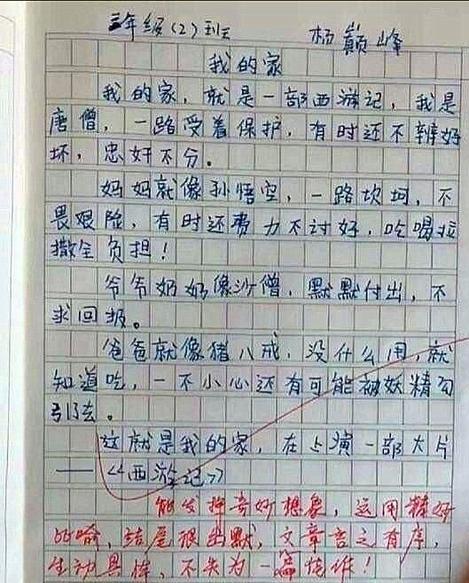 三年级(2)班 杨巅峰
我的家
我的家，就是一部西游记，我是
唐僧，一路受着保护，有时还不辨好
坏，忠奸不分。
妈妈就像孙悟空，一路坎坷，不
畏艰险，有时还费力不讨好，吃喝拉
撒全负担！
爷爷奶奶像沙僧，默默付出，不
求回报。
爸爸就像猪八戒，没什么用，就
知道吃，一不小心还有可能被妖精勾
引去。
这就是我的家，在上演一部大片
——《西游记》
能发挥奇妙想象，运用精好
的喻，结尾很幽默，文章言之有序，
生动具体，不失为一篇佳作！